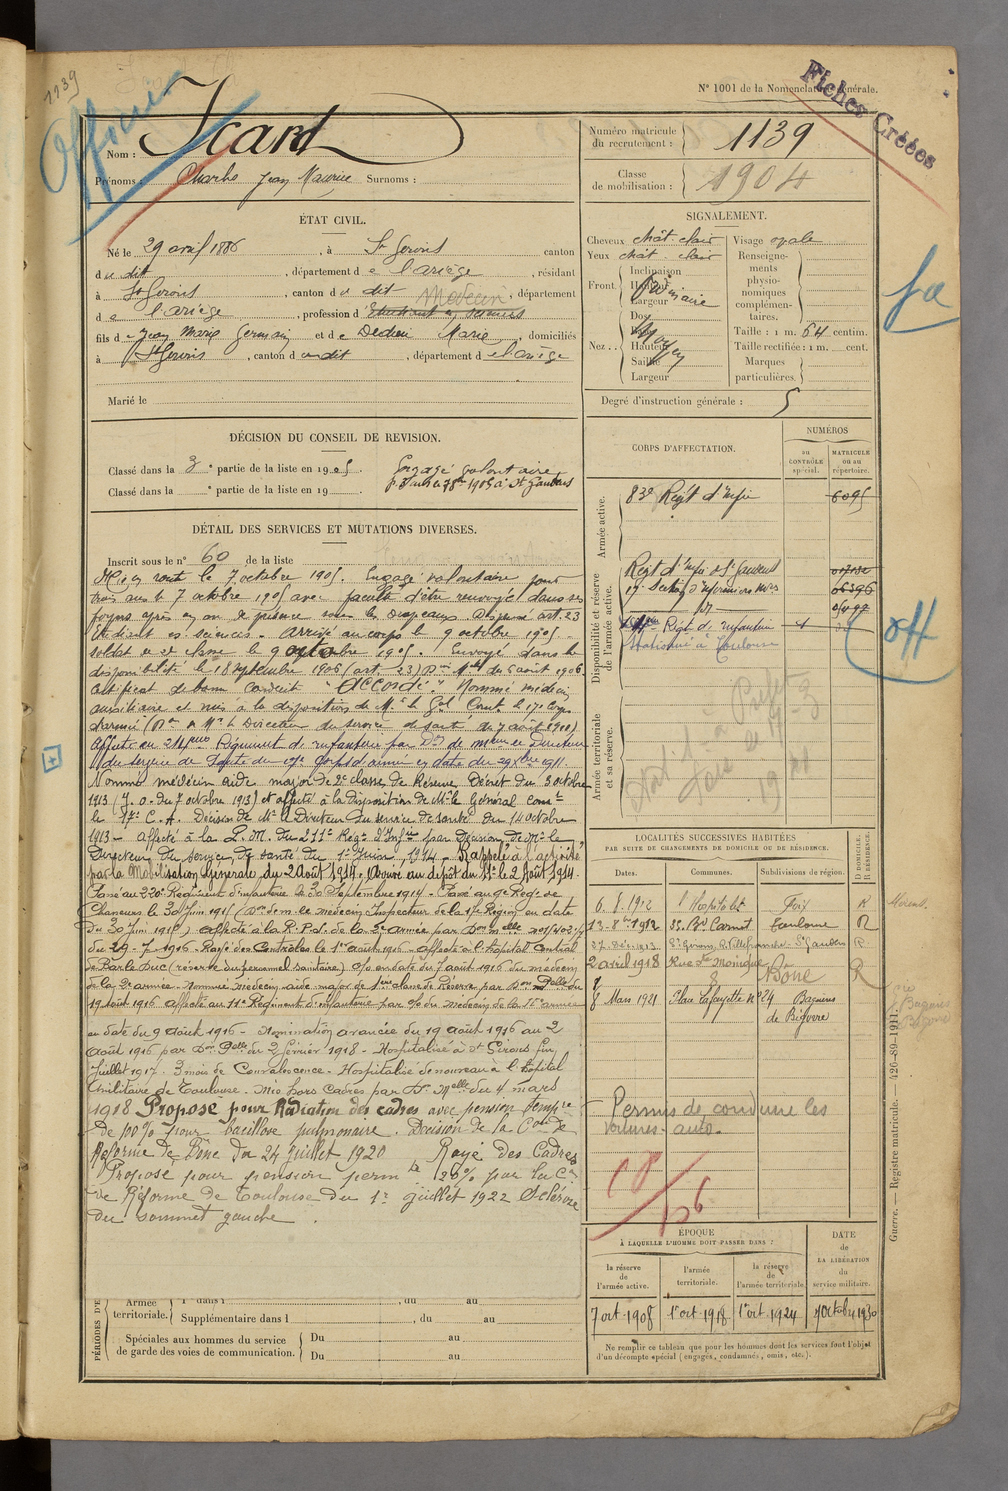 1139
Officier
N° 1001 de la Nomenclature générale.
Fiches Créées
Nom : Icard
Prénoms : Charles Jean Maurice Surnoms :
Numéro matricule du recrutement : 1139
Classe de mobilisation : 1904
ÉTAT CIVIL.
Né le 29 avril 1886, à St Girons canton
du dit, département de l'ariège, résidant
à St Girons, canton du dit, département
Médecin
de l'ariège, profession d'Etudiant es sciences
fils de Jean Marie Germain et de Dedieu Marie, domiciliés
à St Girons, canton du dit, département de l'ariège
Marié le
SIGNALEMENT.
Cheveux chât. clair Visage ovale
Yeux chât. clair Renseignements physionomiques complémentaires.
Front. Inclinaison
Hauteur
Largeur
Nez. Dos
Base
Hauteur
Saillie
Largeur
Moyen
Taille : 1 m. 64 centim.
Taille rectifiée : 1 m. cent.
Marques particulières.
Degré d'instruction générale : 5
DÉCISION DU CONSEIL DE REVISION.
Classé dans la 3e partie de la liste en 1905. Engagé volontaire
Classé dans la e partie de la liste en 19 . à St Gaudens
DÉTAIL DES SERVICES ET MUTATIONS DIVERSES.
Inscrit sous le n° 60 de la liste
Mis en route le 7 octobre 1905. Engagé volontaire pour
trois ans le 7 octobre 1905 avec faculté d'être renvoyé dans ses
foyers après un an de présence sous les drapeaux Dispensé art. 23
Etudiant es sciences. Arrivé au corps le 9 octobre 1905.
soldat de 2e classe le 9 octobre 1905. Envoyé dans la
disponibilité le 18 septembre 1906 (art. 23) du 6 août 1906
Certificat de bonne conduite "Accordé". Nommé médecin
auxiliaire et mis à la disposition de Mr le Gal Comt le 17e Corps
d'armée (Don de Mr le Directeur du service de santé du 7 août 1910)
Affecté au 214eme Régiment d'infanterie par Don de Mr le Directeur
du service de Santé du 17e Corps d'armée en date du 29 1911.
Nommé médecin aide major de 2e classe de Réserve Décret du 3 octobre
1913 (J.O. du 7 octobre 1913) et affecté à la Disposition de Mr le Général Comt
le 17e C.A. Décision de Mr le Directeur du service de santé du 14 octobre
1913 - affecté à la P.M. du 211e Régt d'Infie par Décision de Mr le
Directeur du service de santé du 1er Juin 1914. Rappelé à l'activité
par la Mobilisation Générale du 2 août 1914. Arrivé au dépôt du 11e le 2 Août 1914.
Passé au 220e Régiment d'infanterie le 30 Septembre 1914 - Passé au 9e Régt de
Chasseurs le 30 Juin 1915 (Don de M. le médecin Inspecteur de la 17e Région en date
du 30 Juin 1915) affecté à la R.P.S. de la 2e armée par Don
du 29-7-1916 - Rayé des Contrôles le 1er août 1916 - affecté à l'hôpital Central
de Bar le Duc (réserve du personnel sanitaire) en date du 7 août 1916 du médecin
de la 2e armée - Nommé médecin aide major de 1ère classe de Réserve par Don Melle du
19 août 1916 affecté au 11e Régiment d'infanterie par du médecin de la armée
en date du 9 août 1916 - Nomination avancée du 19 août 1916 au 2
août 1916 par Don Pelle du 2 février 1918 - Hospitalisé à St Girons fin
Juillet 1917. 3 mois de Convalescence - Hospitalisé de nouveau à l'hôpital
Militaire de Toulouse. Mis hors cadres par Don Melle du 4 mars
1918 Proposé pour Radiation des cadres avec pension tempre
de 100% pour bacillose pulmonaire. Décision de la Con de
Réforme de Bône du 24 Juillet 1920 Rayé des Cadres
Proposé pour pension perm 20% par la Con
de Réforme de Toulouse du 1er Juillet 1922 Sclérose
du sommet gauche.
CORPS D'AFFECTATION.
NUMÉROS
au CONTRÔLE spécial.
MATRICULE ou au répertoire.
Armée active.
83e Régt d'Infie 6095
Disponibilité et réserve de l'armée active.
Régt d'Infie de St Gaudens
17e Section d'infirmiers mres 06396
Régt de infanterie
Stationné à Toulouse
off
Armée territoriale et sa réserve.
LOCALITÉS SUCCESSIVES HABITÉES
PAR SUITE DE CHANGEMENTS DE DOMICILE OU DE RÉSIDENCE.
Dates. Communes. Subdivisions de région. D. DOMICILE. R. RÉSIDENCE.
l'Hospitalet Foix R
1912 35 Bd Carnot Toulouse R
27 Déc 1913 St Girons, R. Villefranche St Gaudens R
2 avril 1918 Rue Ste Monique 8 Bône R
8 Mars 1921 Place Lafayette n° 24 Bagnères de Bigorre
Permis de conduire les
voitures-auto.
ÉPOQUE
À LAQUELLE L'HOMME DOIT PASSER DANS :
DATE de LA LIBÉRATION du service militaire.
la réserve de l'armée active.
l'armée territoriale.
la réserve de l'armée territoriale
7 oct 1908 1er oct 1918 1er oct 1924 7 octobre 1930
Ne remplir ce tableau que pour les hommes dont les services font l'objet
d'un décompte spécial (engagés, condamnés, omis, etc.).
PÉRIODES D'E
Armée territoriale.
1re dans l , du au
Supplémentaire dans l , du au
Spéciales aux hommes du service de garde des voies de communication.
Du au
Du au
Guerre. — Registre matricule. — 426-89-1911.